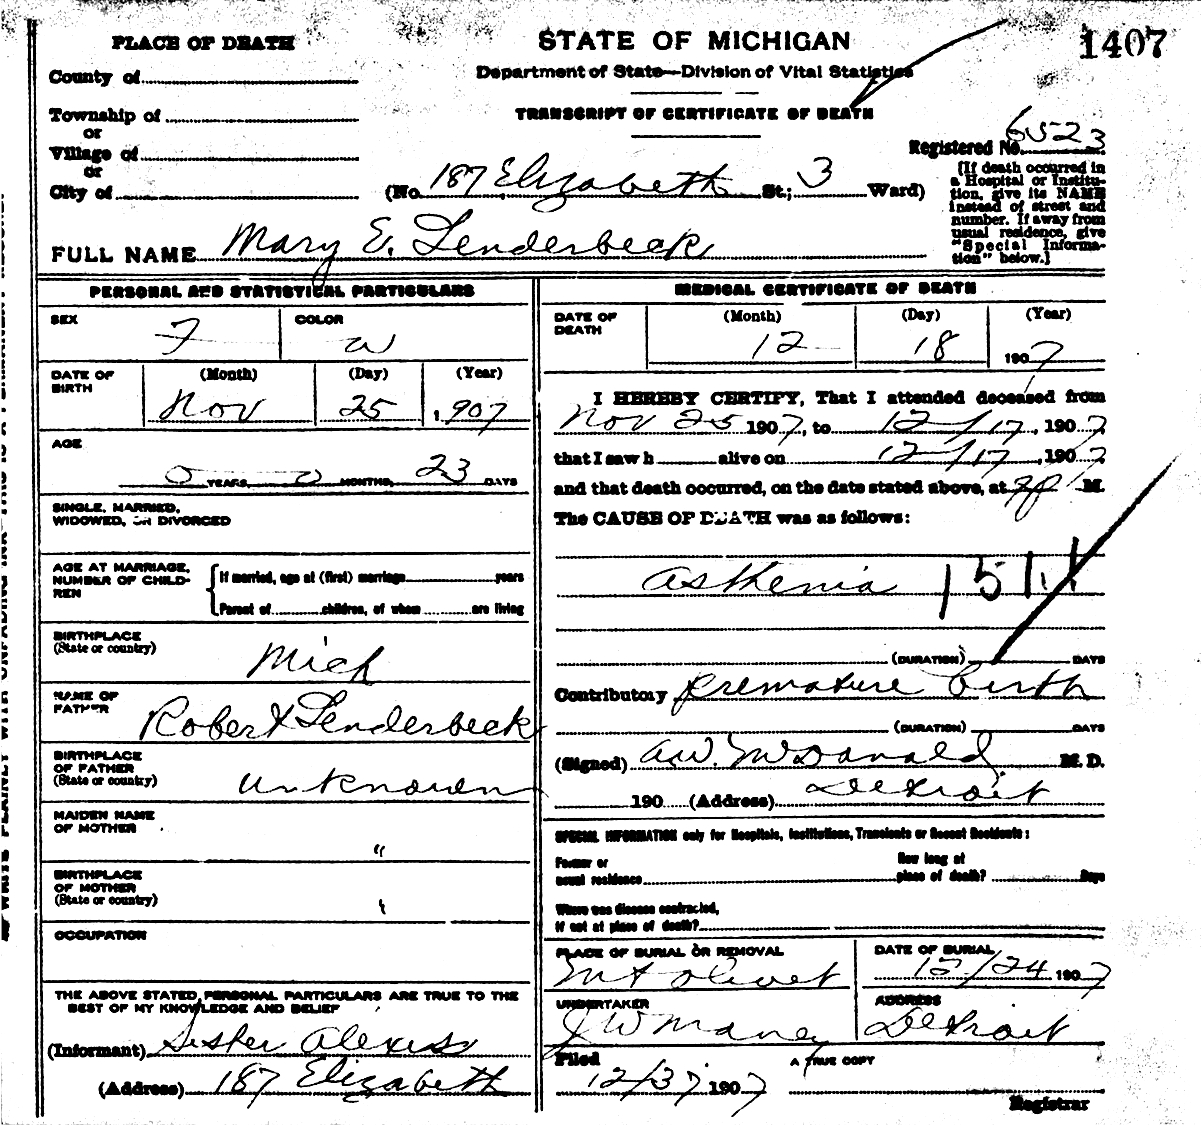 PLACE OF DEATH
STATE OF MICHIGAN
1407
County of
Department of State—Division of Vital Statistics
Township of
or
TRANSCRIPT OF CERTIFICATE OF DEATH
Village of
or
Registered No. 6523
City of
(No. 187 Elizabeth St.; 3 Ward)
[If death occurred in
a Hospital or Institu-
tion, give its NAME
instead of street and
number. If away from
usual residence, give
"Special Informa-
tion" below.]
FULL NAME Mary E. Lenderbeck
PERSONAL AND STATISTICAL PARTICULARS
SEX F
COLOR W
DATE OF BIRTH
(Month) (Day) (Year)
Nov 25, 1907
AGE
0 YEARS, 0 MONTHS, 23 DAYS
SINGLE, MARRIED,
WIDOWED, OR DIVORCED
AGE AT MARRIAGE,
NUMBER OF CHILD-
REN
If married, age at (first) marriage years
Parent of children, of whom are living
BIRTHPLACE
(State or country)
Mich
NAME OF
FATHER
Robert Lenderbeck
BIRTHPLACE
OF FATHER
(State or country)
Unknown
MAIDEN NAME
OF MOTHER
"
BIRTHPLACE
OF MOTHER
(State or country)
"
OCCUPATION
THE ABOVE STATED PERSONAL PARTICULARS ARE TRUE TO THE
BEST OF MY KNOWLEDGE AND BELIEF
(Informant) Sister Alexis
(Address) 187 Elizabeth
MEDICAL CERTIFICATE OF DEATH
DATE OF
DEATH
(Month) (Day) (Year)
12 18 1907
I HEREBY CERTIFY, That I attended deceased from
Nov 25 1907, to 12/17, 1907,
that I saw h alive on 12/17, 1907
and that death occurred, on the date stated above, at M.
The CAUSE OF DEATH was as follows:
Asthenia 151.1
(DURATION) DAYS
Contributory premature birth
(DURATION) DAYS
(Signed) A.W. McDonald, M. D.
190 (Address) Detroit
SPECIAL INFORMATION only for Hospitals, Institutions, Transients or Recent Residents:
Former or
usual residence
How long at
place of death? Days
Where was disease contracted,
if not at place of death?
PLACE OF BURIAL OR REMOVAL
Mt Olivet
DATE OF BURIAL
12/24 1907
UNDERTAKER
J W Maney
ADDRESS
Detroit
Filed
12/ 1907
A TRUE COPY
Registrar